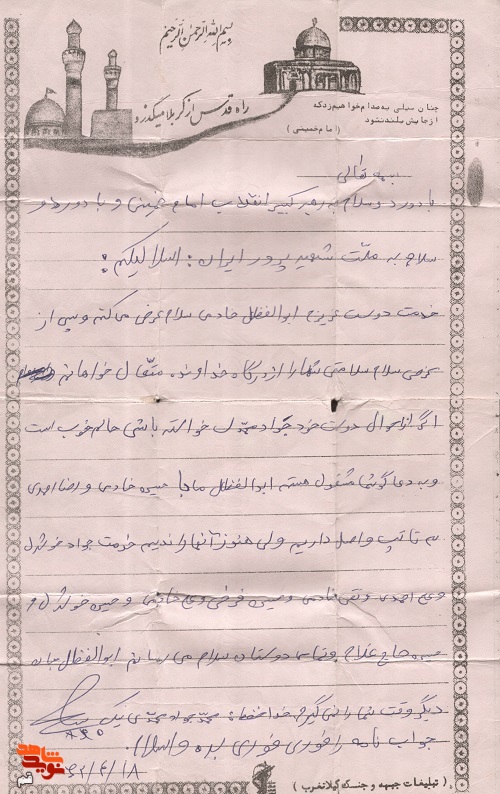 بسم الله الرحمن الرحیم
راه قدس از کربلا میگذرد
چنان سیلی به صدام خواهیم زد که
از جایش بلند نشود
(امام خمینی)
بسمه تعالی
با درود و سلام به رهبر کبیر انقلاب امام خمینی و با درود و
سلام به ملت شهید پرور ایران: السلام علیکم:
خدمت دوست عزیزم ابوالفضل خادمی سلام عرض می کنم و پس از
عرض سلام سلامتی شما را از درگاه خداوند متعال خواهانم
اگر از احوال دوست خود جواد محمدی خواسته باشی حالم خوب است
و به دعا گوئی شما مشغول هستم ابوالفضل ما با حمیده خادمی و رضا احمدی
به تا تیپ واصل داریم ولی هنوز آنها را ندیم خدمت جواد خوشدل
و علی احمدی و تقی خادمی و حمیده فرضی و علی خادمی و حمیده خوشدل و
حاج غلام و تمامی دوستان سلام می رسانم ابوالفضل جان
دیگر وقت شما را نمی گیرم خداحافظ: محمد جواد محمدی نیک
جواب نامه را فوری فوری بده والسلام.
۶۲/۴/۱۸
(تبلیغات جبهه و جنگ گیلانغرب)
نوید شاهد